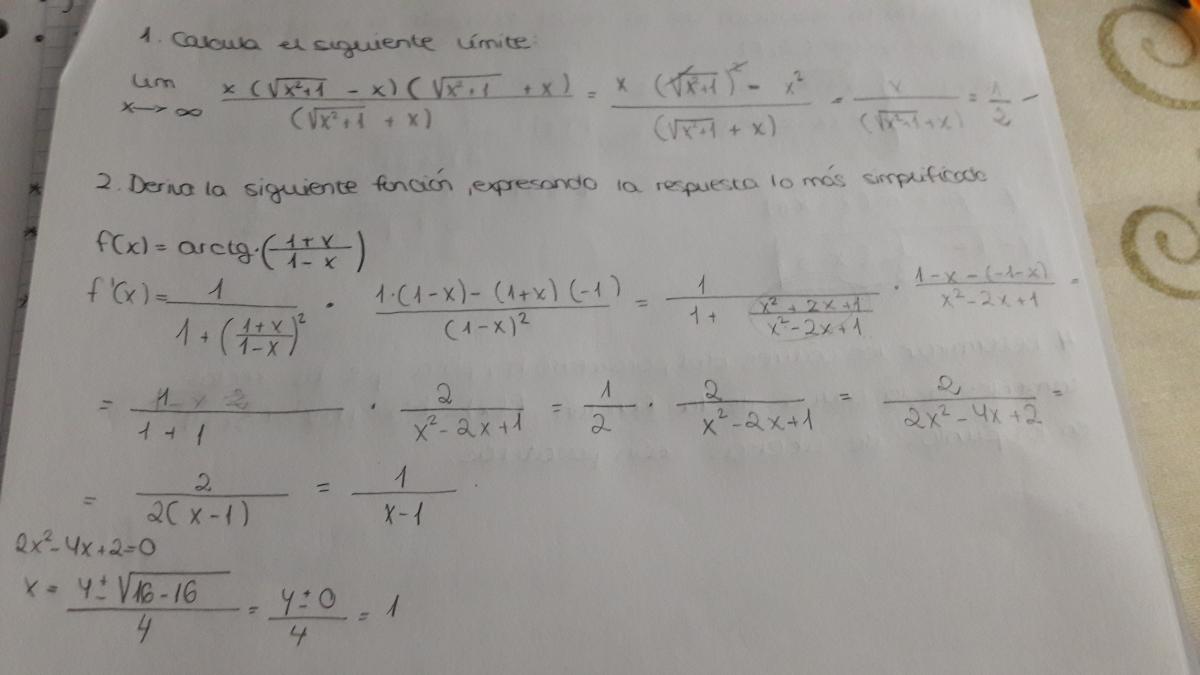 1. Calcula el siguiente límite:
lim x→∞ x(√x²+1 - x)(√x²+1 + x) / (√x²+1 + x) = x (√x²+1)² - x² / (√x²+1 + x) = x / (√x²+1 + x) = 1/2
2. Deriva la siguiente función, expresando la respuesta lo más simplificada
f(x) = arctg·(1+x / 1-x)
f'(x) = 1 / 1+(1+x / 1-x)² · 1·(1-x)-(1+x)(-1) / (1-x)² = 1 / 1+ x²+2x+1 / x²-2x+1 · 1-x-(-1-x) / x²-2x+1 =
= 1 / 1+1 · 2 / x²-2x+1 = 1/2 · 2 / x²-2x+1 = 2 / 2x²-4x+2 =
= 2 / 2(x-1) = 1 / x-1
2x²-4x+2=0
x = 4±√16-16 / 4 = 4±0 / 4 = 1